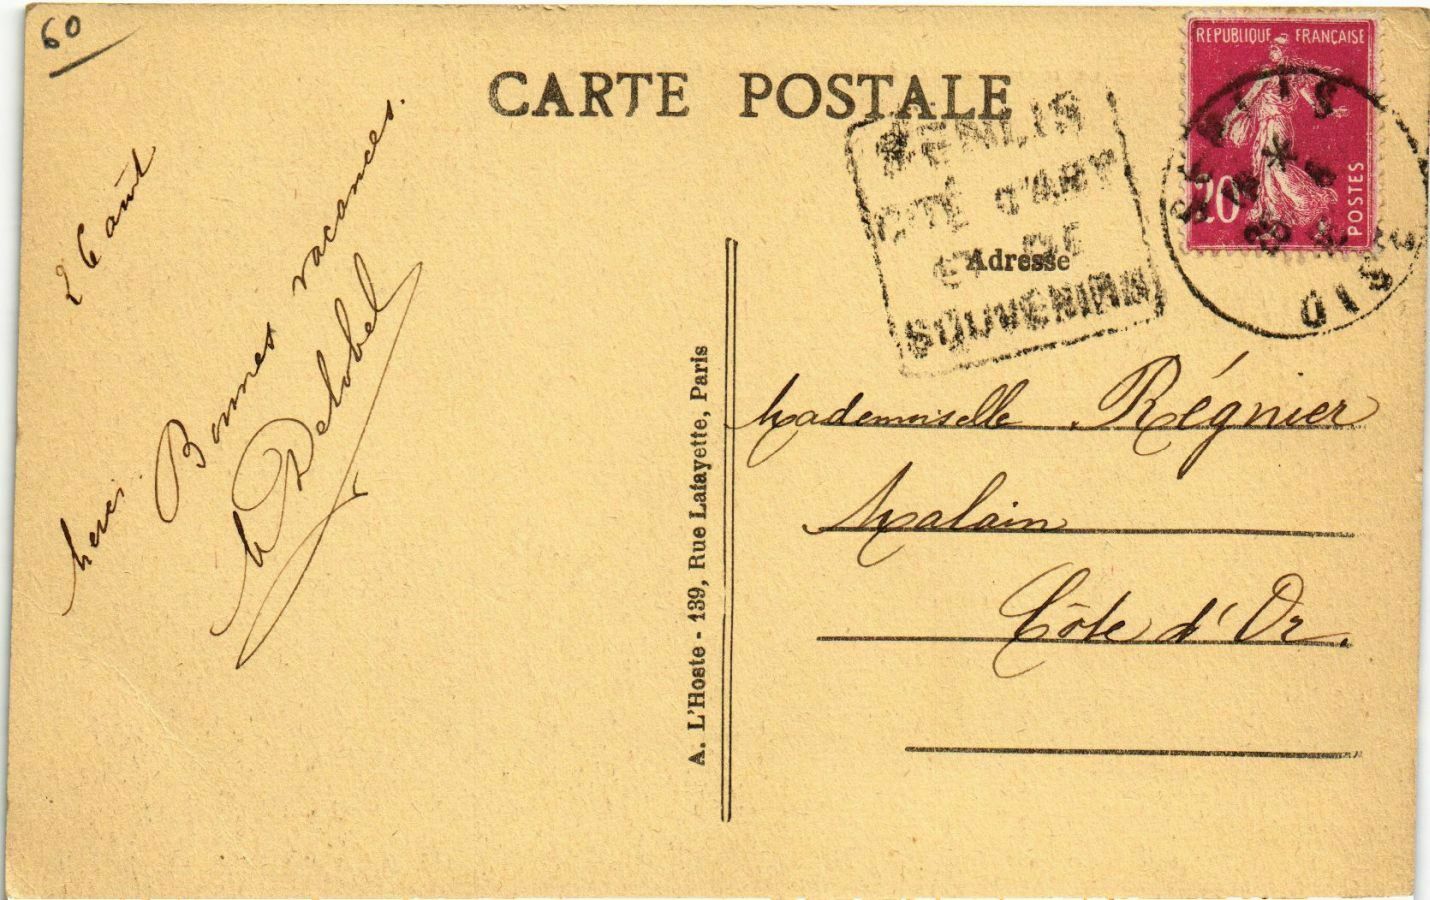 60
CARTE POSTALE
REPUBLIQUE FRANÇAISE
20
POSTES
SENLIS
OISE
SENLIS
CITÉ D'ART
ET DE
SOUVENIRS
Adresse
26 août
Merci. Bonnes vacances.
M Delobel
A. L'Hoste - 139, Rue Lafayette, Paris
Mademoiselle Régnier
Malain
Côte d'Or.